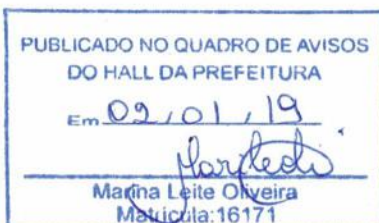 PUBLICADO NO QUADRO DE AVISOS
DO HALL DA PREFEITURA
Em 02/01/19
Marina Leite Oliveira
Matrícula:16171